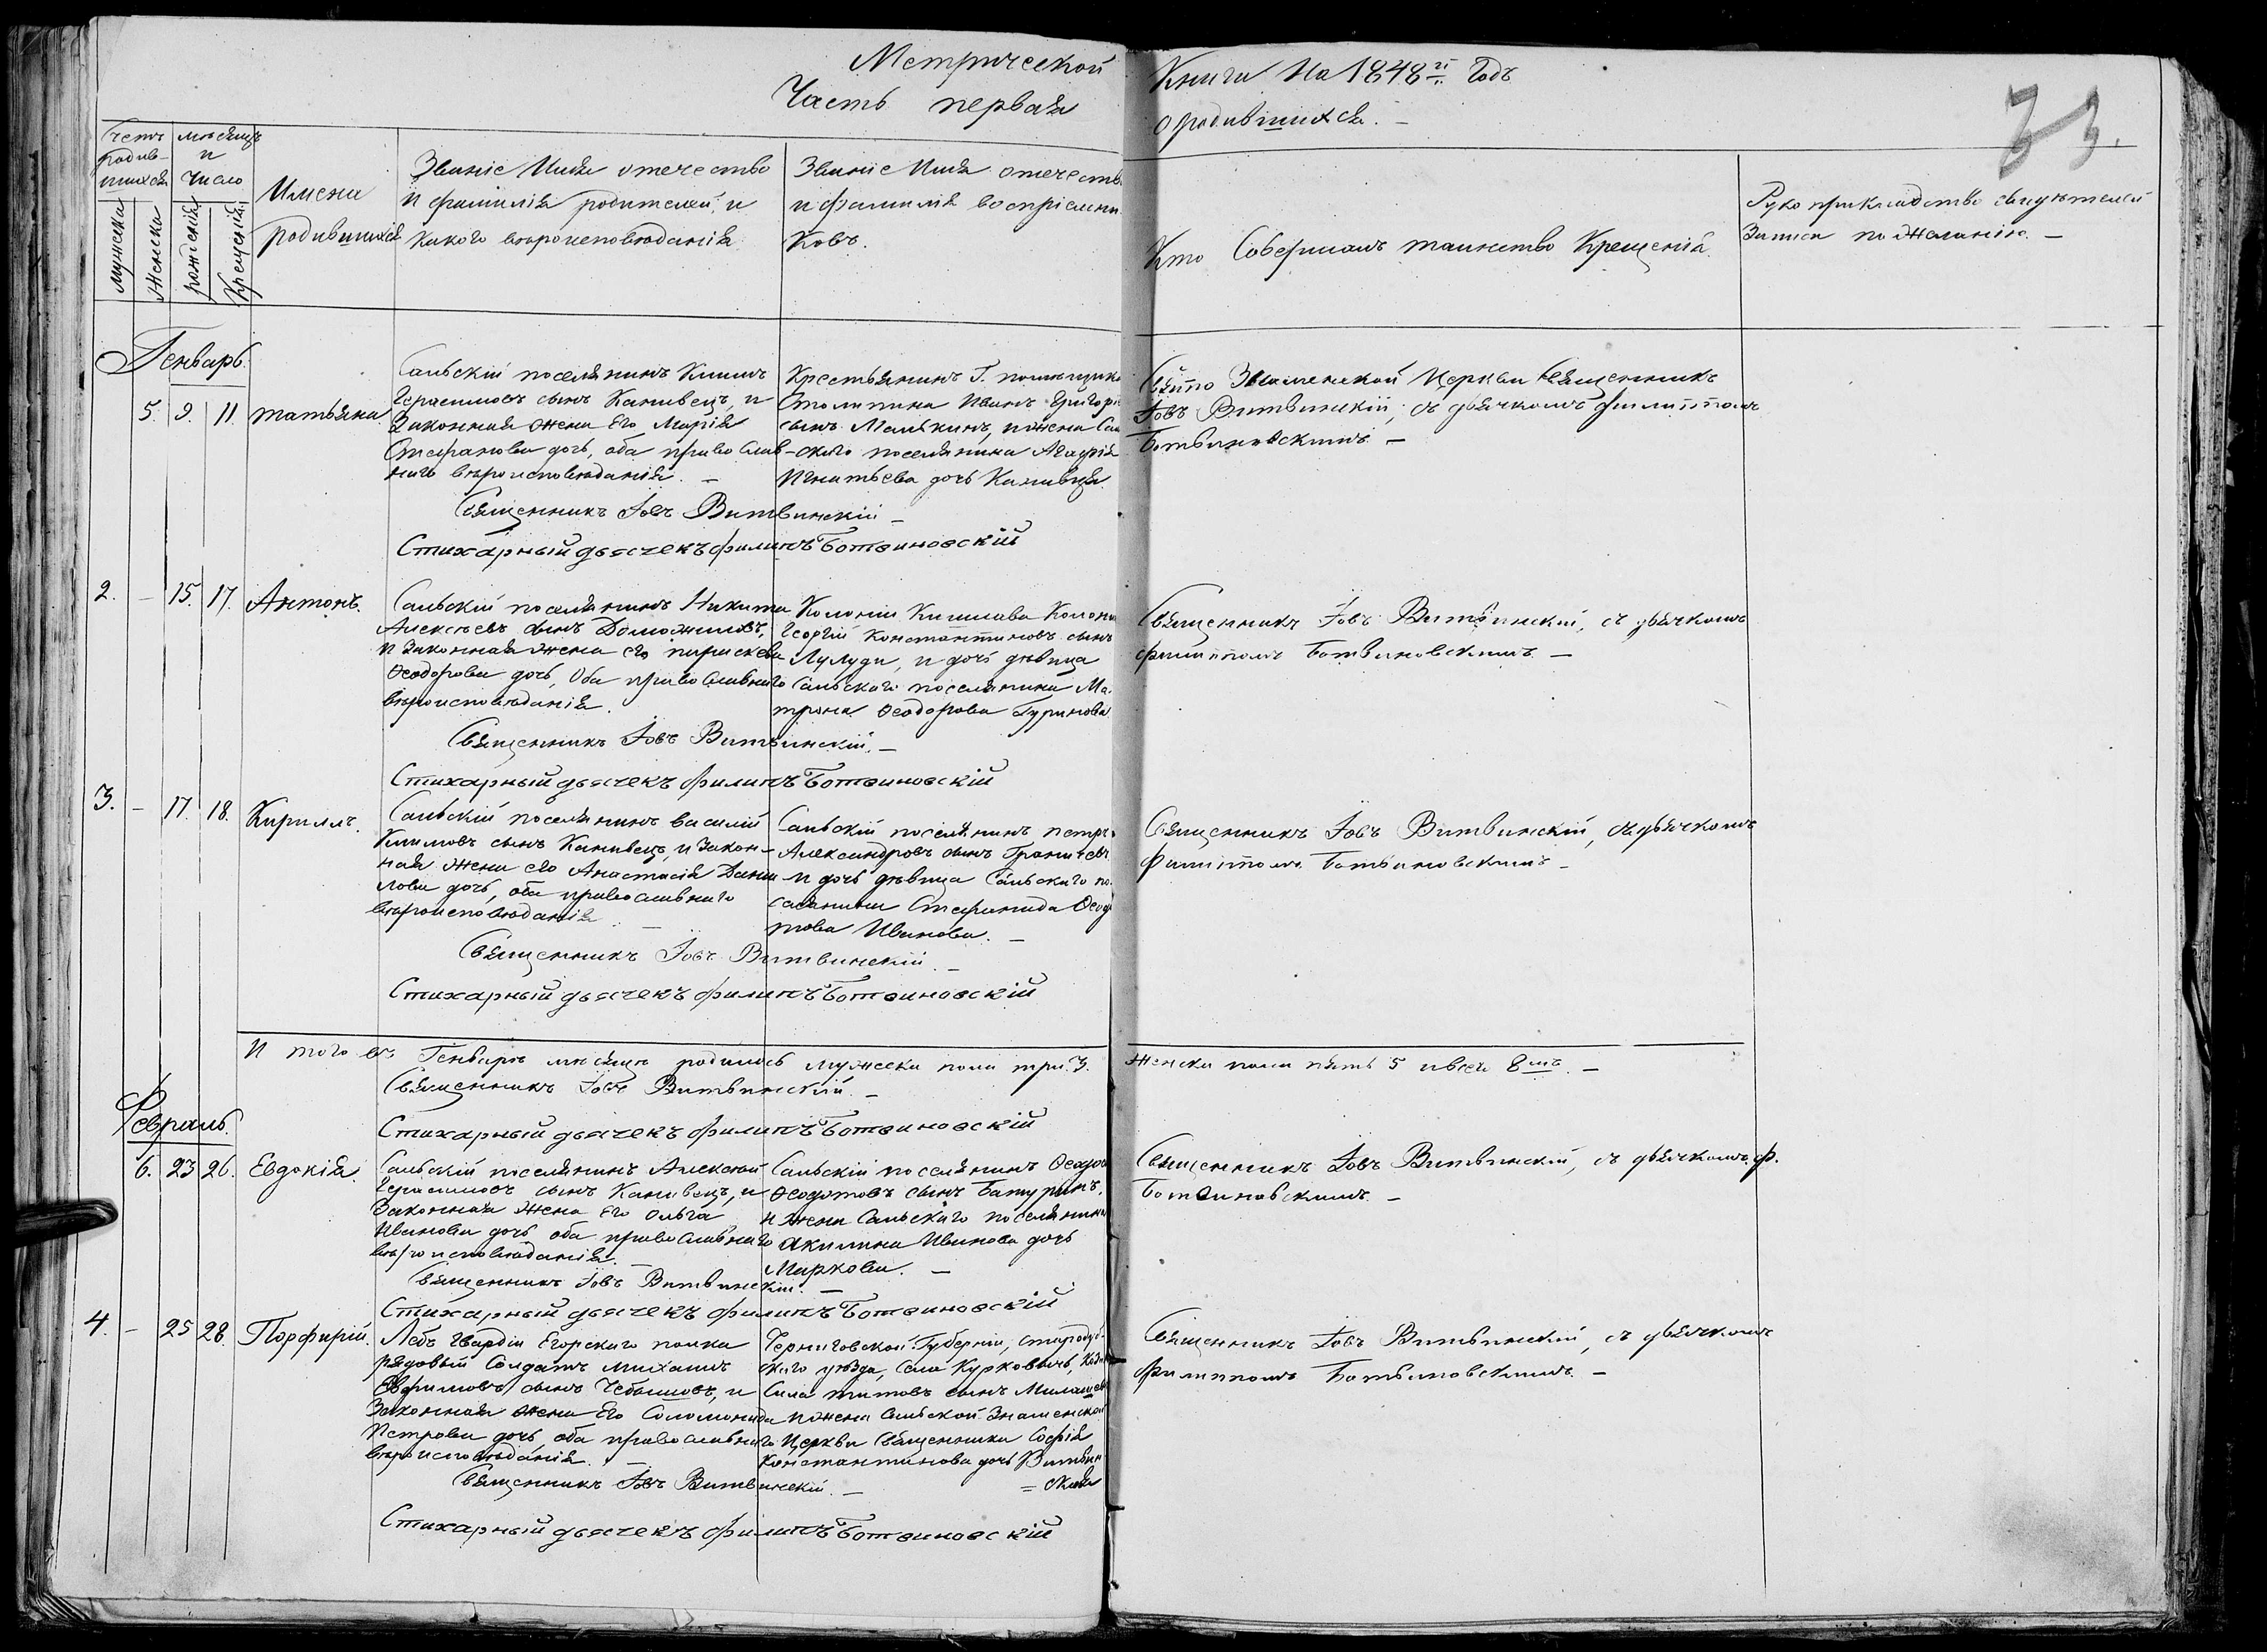 Метрической Книги На 1848й Годъ
Часть первая о родившихся. –
33.
Счетъ родив-шихся
мужеска
женска
мѣсяцъ и число
рожденія
Крещенія
Имена родившихся
Званіе Имя отечество
и фамилія родителей, и
какого вѣроисповѣданія
Званіе Имя отечеств
и фамилія воспріемни
ковъ.
Кто Совершалъ таинство Крещенія.
Рукоприкладство свидѣтелей
записи по желанію. –
Генварь.
5. 9. 11. татьяна.
Сальскій поселянинъ Климъ
Герасимовъ сынъ Канивецъ, и
Законная жена Его Марія
Стефанова дочь, оба православ-
наго вѣроисповѣданія. –
Крестьянинъ Г. помѣщика
Столыпина Иванъ Григорі
сынъ Малыкинъ, и жена Саль
-скаго поселянина Агафія
Игнатьева дочь Канивця.
Свято Знаменской Церкви священникъ
Іовъ Витвинскій, съ дьячкомъ Филиппомъ
Ботвиновскимъ. –
Священникъ Іовъ Витвинскій –
Стихарный дьячекъ филипъ Ботвиновскій
2. – 15. 17. Антонъ.
Сальскій поселянинъ Никита
Алексѣевъ сынъ Доможиловъ,
и законная жена его параскева
Ѳеодорова дочь, Оба православнаго
вѣроисповѣданія.
Колоніи Колони
Георгій Константиновъ сынъ
Лулуди, и дочь дѣвица
Сальскаго поселянина Ма-
трона Ѳеодорова Гуринова
Священникъ Іовъ Витвинскій, съ дьячкомъ
филиппомъ Ботвиновскимъ. –
Священникъ Іовъ Витвинскій. –
Стихарный дьячекъ филипъ Ботвиновскій
3. – 17. 18. Кириллъ.
Сальскій поселянинъ василій
Климовъ сынъ Канивецъ, и закон-
ная жена его Анастасія Дани
лова дочь, оба православнаго
вѣроисповѣданія. –
Сальскій поселянинъ петръ
Александровъ сынъ
и дочь дѣвица Сальскаго по
селянина Стефанида Ѳеодо
това Иванова. –
Священникъ Іовъ Витвинскій, съ дьячкомъ
Филиппомъ Ботвиновскимъ –
Священникъ Іовъ Витвинскій. –
Стихарный дьячекъ филипъ Ботвиновскій
И того въ Генварѣ мѣсяцѣ родилось мужеска пола три. 3. Женска пола пять 5 и всех 8мь. –
Священникъ Іовъ Витвинскій. –
Стихарный дьячекъ филипъ Ботвиновскій
Февраль.
6. 23 26. Евдокія.
Сальскій поселянинъ Алексѣй
Герасимовъ сынъ Канивецъ, и
Законная жена Его ольга
Иванова дочь оба православнаго
вѣроисповѣданія. –
Сальскій поселянинъ Ѳеодо
Ѳеодотовъ сынъ Батуринъ,
и жена Сальскаго поселянина
Акилина Иванова дочь
Маркова. –
Священникъ Іовъ Витвинскій, съ дьячкомъ Ф.
Ботвиновскимъ. –
Священникъ Іовъ Витвинскій. –
Стихарный дьячекъ филипъ Ботвиновскій
4. – 25 28. Порфирій.
Лебъ гвардіи Егорскаго полка
рядовый Солдатъ михаилъ
Евфимовъ сынъ Чебышовъ, и
Законная жена Его Соломонида
Петрова дочь оба православнаго
вѣроисповѣданія. –
Черниговской Губерніи, стародуб-
скаго уѣзда, Села Курковичъ,
Сила титовъ сынъ
и жена Сальской Знаменской
Церкви Священника Софія
Константинова дочь Витвин
= ская
Священникъ Іовъ Витвинскій, съ дьячкомъ
Филиппомъ Ботвиновскимъ. –
Священникъ Іовъ Витвинскій. –
Стихарный дьячекъ филипъ Ботвиновскій